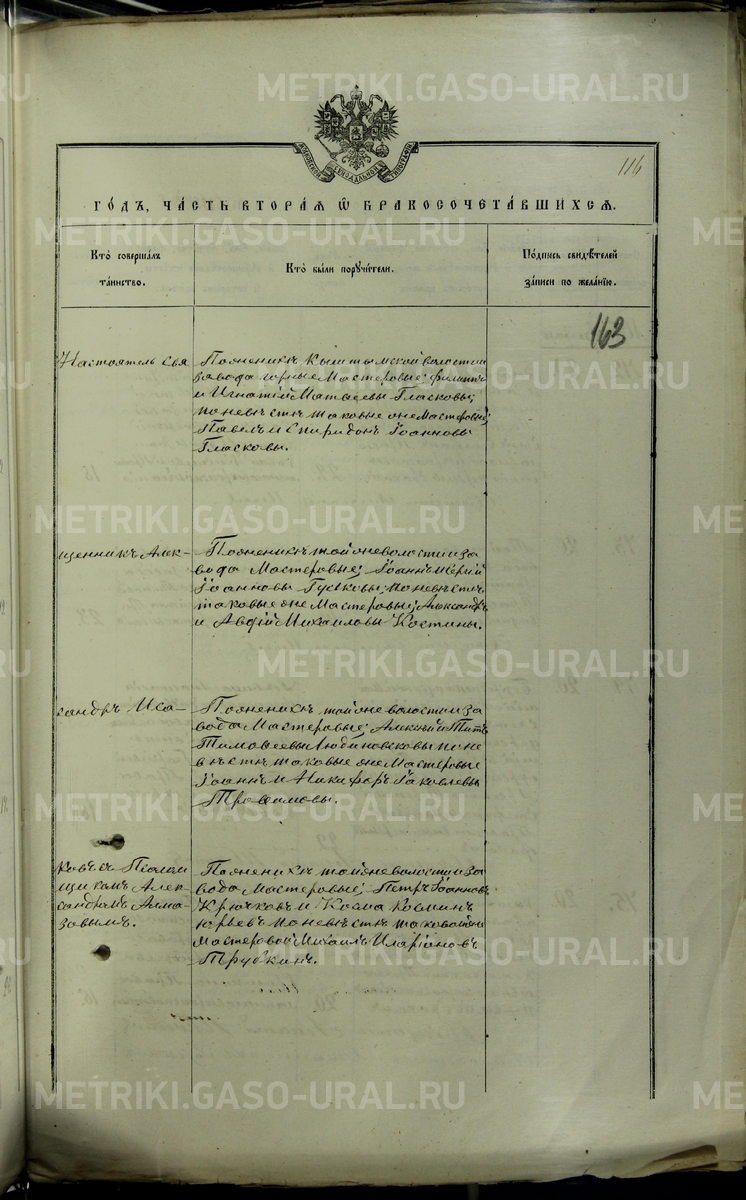 METRIKI.GASO-URAL.RU
116
ГО́ДЪ, ЧА́СТЬ ВТОРА́Я Ѿ БРАКОСОЧЕТА́ВШИХСЯ.
Кто̀ соверша́лъ
та́инство.
Кто̀ бы́ли порꙋчи́тели.
По́дпись свидѣ́телей
за́писи по жела́нїю.
163
Настоятель Свя
По женихѣ Кыштымской волости и
завода горные Мастеровые; Филиппъ
и Игнатій Матвеевы Гласковы;
по невѣстѣ таковые же Мастеровые
Павелъ и Спиридонъ Іоанновы
Гласковы.
щенникъ Алек-
По женихѣ той же волости и за
вода Мастеровые; Іоаннъ и
Іоанновы Гуськовы; по невѣстѣ
таковые же Мастеровые; Александръ
и Авдій Михаиловы Костины.
сандръ Иса-
По женихѣ той же волости и за
вода Мастеровые; Алексѣй и Титъ
Тимоѳеевы Людиновсковы по не
вѣстѣ таковые же Мастеровые
Іоаннъ и Никифоръ Іаковлевы
Трофимовы.
ковъ съ Псалом
щикомъ Алек-
сандромъ Алма-
зовымъ.
По женихѣ той же волости и за
вода Мастеровые; Петръ Іоанновъ
Крючковъ и Косма Космин
Юрьевъ по невѣстѣ таковой же
Мастеровой Михаилъ Иларіоновъ
Трубкинъ.